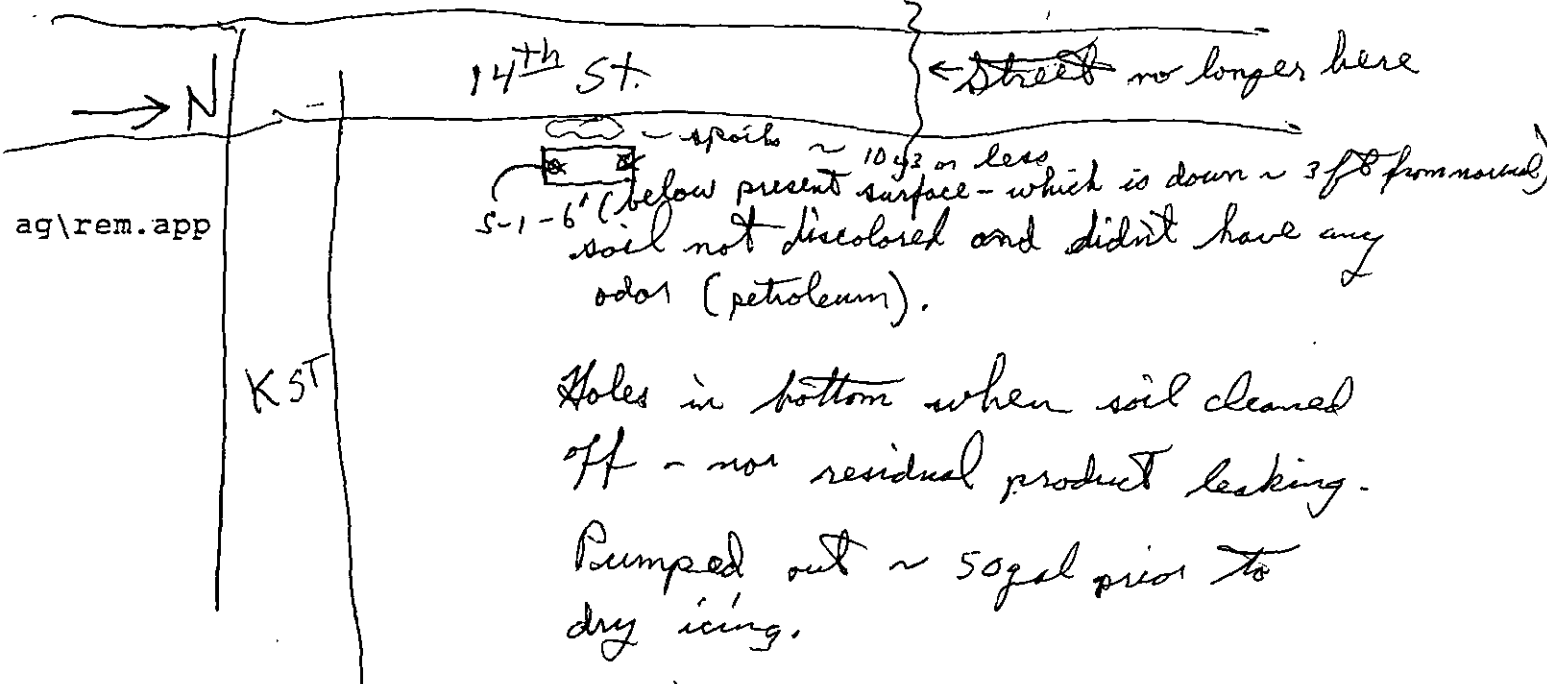 14th St.
← Street no longer here
→ N
~ spoils ~ 10 y3 or less
S-1-6' (below present surface - which is down ~ 3 ft from normal)
ag\rem.app
soil not discolored and didn't have any
odor (petroleum).
K ST
Holes in bottom when soil cleaned
off - nor residual product leaking.
Pumped out ~ 50 gal prior to
dry icing.